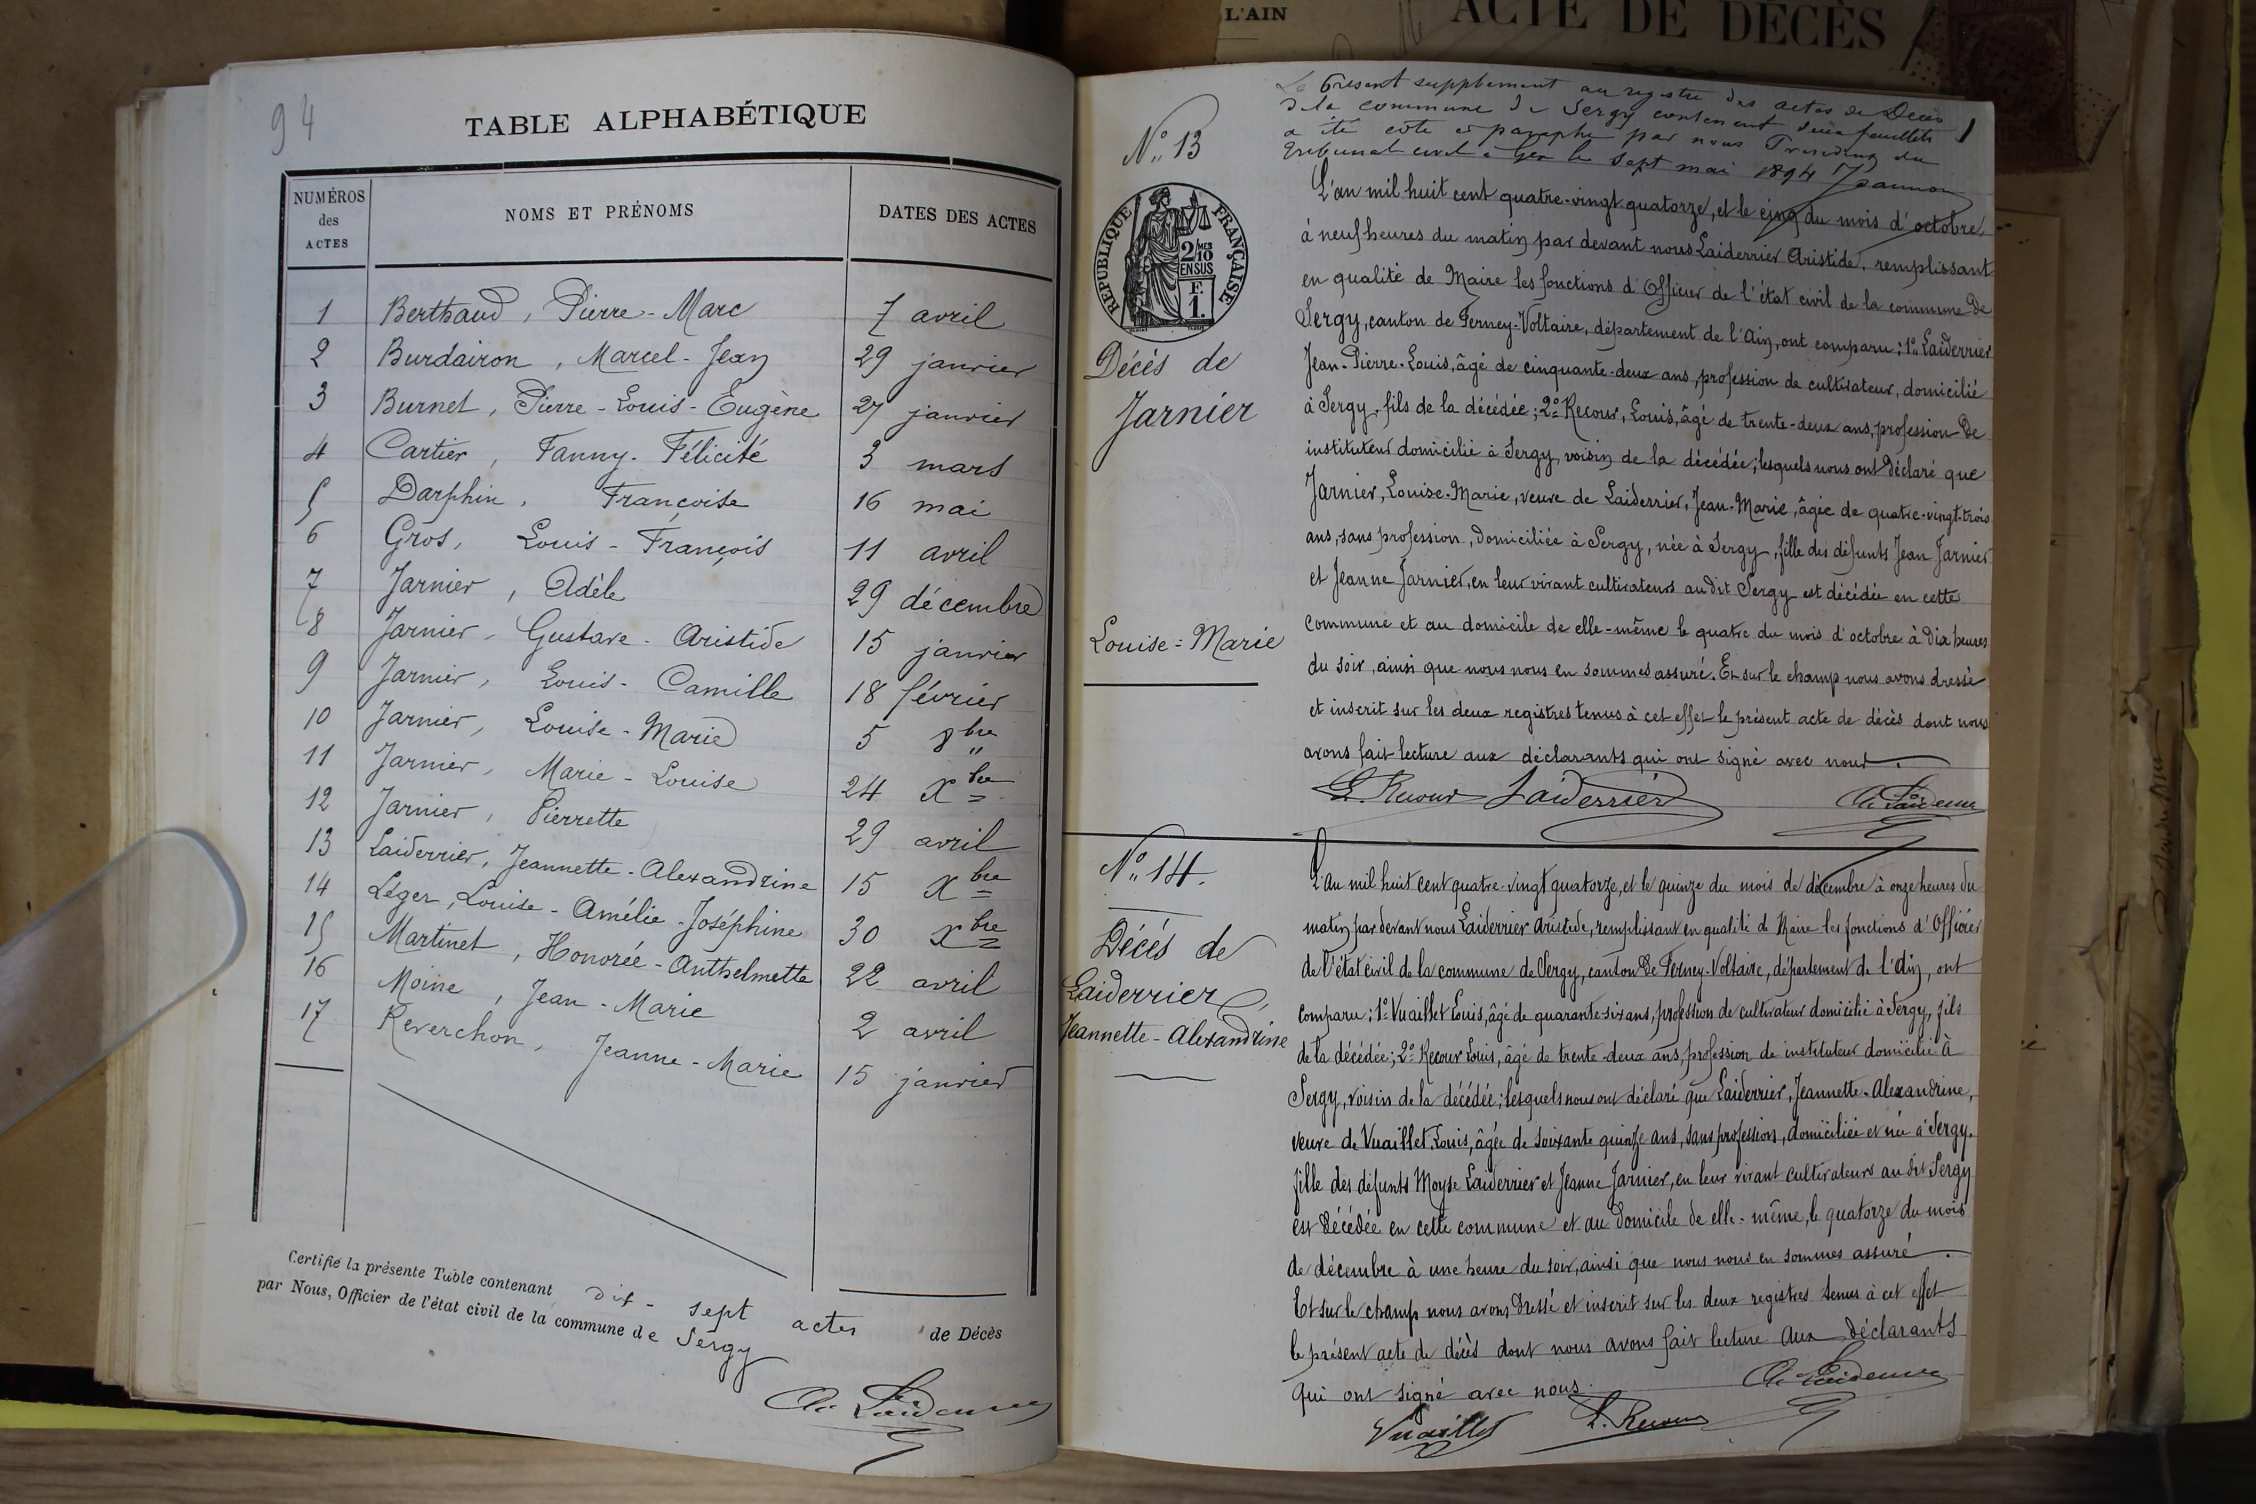 L'AIN
ACTE DE DÉCÈS
94
TABLE ALPHABÉTIQUE
NUMÉROS des ACTES
NOMS ET PRÉNOMS
DATES DES ACTES
1 Berthaud, Pierre-Marc 7 avril
2 Burdairon, Marcel-Jean 29 janvier
3 Burnet, Pierre-Louis-Eugène 27 janvier
4 Cartier, Fanny-Félicité 3 mars
5 Darphin, Françoise 16 mai
6 Gros, Louis-François 11 avril
7 Jarnier, Adèle 29 décembre
8 Jarnier, Gustave-Aristide 15 janvier
9 Jarnier, Louis-Camille 18 février
10 Jarnier, Louise-Marie 5 8bre
11 Jarnier, Marie-Louise 24 Xbre
12 Jarnier, Pierrette 29 avril
13 Laiderrier, Jeannette-Alexandrine 15 Xbre
14 Léger, Louise-Amélie-Joséphine 30 Xbre
15 Martinet, Honorée-Anthelmette 22 avril
16 Moine, Jean-Marie 2 avril
17 Reverchon, Jeanne-Marie 15 janvier
Certifié la présente Table contenant dix-sept actes de Décès
par Nous, Officier de l'état civil de la commune de Sergy
Ar Laiderrier
Le présent supplément au registre des actes de Décès
de la commune de Sergy contenant deux feuillets
a été coté et paraphé par nous Président du
Tribunal civil à Gex le sept mai 1894
1
N° 13
RÉPUBLIQUE FRANÇAISE
2/10 MES
EN SUS
F.
1.
Décès de
Jarnier
Louise=Marie
L'an mil huit cent quatre-vingt quatorze, et le cinq du mois d'octobre,
à neuf heures du matin par devant nous Laiderrier Aristide, remplissant
en qualité de Maire les fonctions d'Officier de l'état civil de la commune de
Sergy, canton de Ferney-Voltaire, département de l'Ain, ont comparu: 1° Laiderrier
Jean-Pierre-Louis, âgé de cinquante-deux ans, profession de cultivateur, domicilié
à Sergy, fils de la décédée; 2° Recour, Louis, âgé de trente-deux ans, profession de
instituteur domicilié à Sergy, voisin de la décédée; lesquels nous ont déclaré que
Jarnier, Louise-Marie, veuve de Laiderrier, Jean-Marie, âgée de quatre-vingt-trois
ans, sans profession, domiciliée à Sergy, née à Sergy, fille des défunts Jean Jarnier
et Jeanne Jarnier, en leur vivant cultivateurs au dit Sergy est décédée en cette
commune et au domicile de elle-même le quatre du mois d'octobre à dix heures
du soir, ainsi que nous nous en sommes assuré. Et sur le champ nous avons dressé
et inscrit sur les deux registres tenus à cet effet le présent acte de décès dont nous
avons fait lecture aux déclarants qui ont signé avec nous.
L. Recour Laiderrier Ar Laiderrier
N° 14.
Décès de
Laiderrier,
Jeannette-Alexandrine
L'an mil huit cent quatre-vingt quatorze, et le quinze du mois de décembre à onze heures du
matin par devant nous Laiderrier Aristide, remplissant en qualité d Maire les fonctions d'Officier
de l'état civil de la commune de Sergy, canton de Ferney-Voltaire, département de l'Ain, ont
comparu: 1° Vuaillet Louis, âgé de quarante-six ans, profession de cultivateur domicilié à Sergy, fils
de la décédée; 2° Recour Louis, âgé de trente-deux ans, profession de instituteur domicilié à
Sergy, voisin de la décédée; lesquels nous ont déclaré que Laiderrier, Jeannette-Alexandrine,
veuve de Vuaillet Louis, âgée de soixante quinze ans, sans profession, domiciliée et née à Sergy,
fille des défunts Moyse Laiderrier et Jeanne Jarnier, en leur vivant cultivateurs au dit Sergy
est décédée en cette commune et au domicile de elle-même, le quatorze du mois
de décembre à une heure du soir, ainsi que nous nous en sommes assuré.
Et sur le champ nous avons dressé et inscrit sur les deux registres tenus à cet effet
le présent acte de décès dont nous avons fait lecture aux déclarants
qui ont signé avec nous. Ar Laiderrier
Vuaillet L. Recour